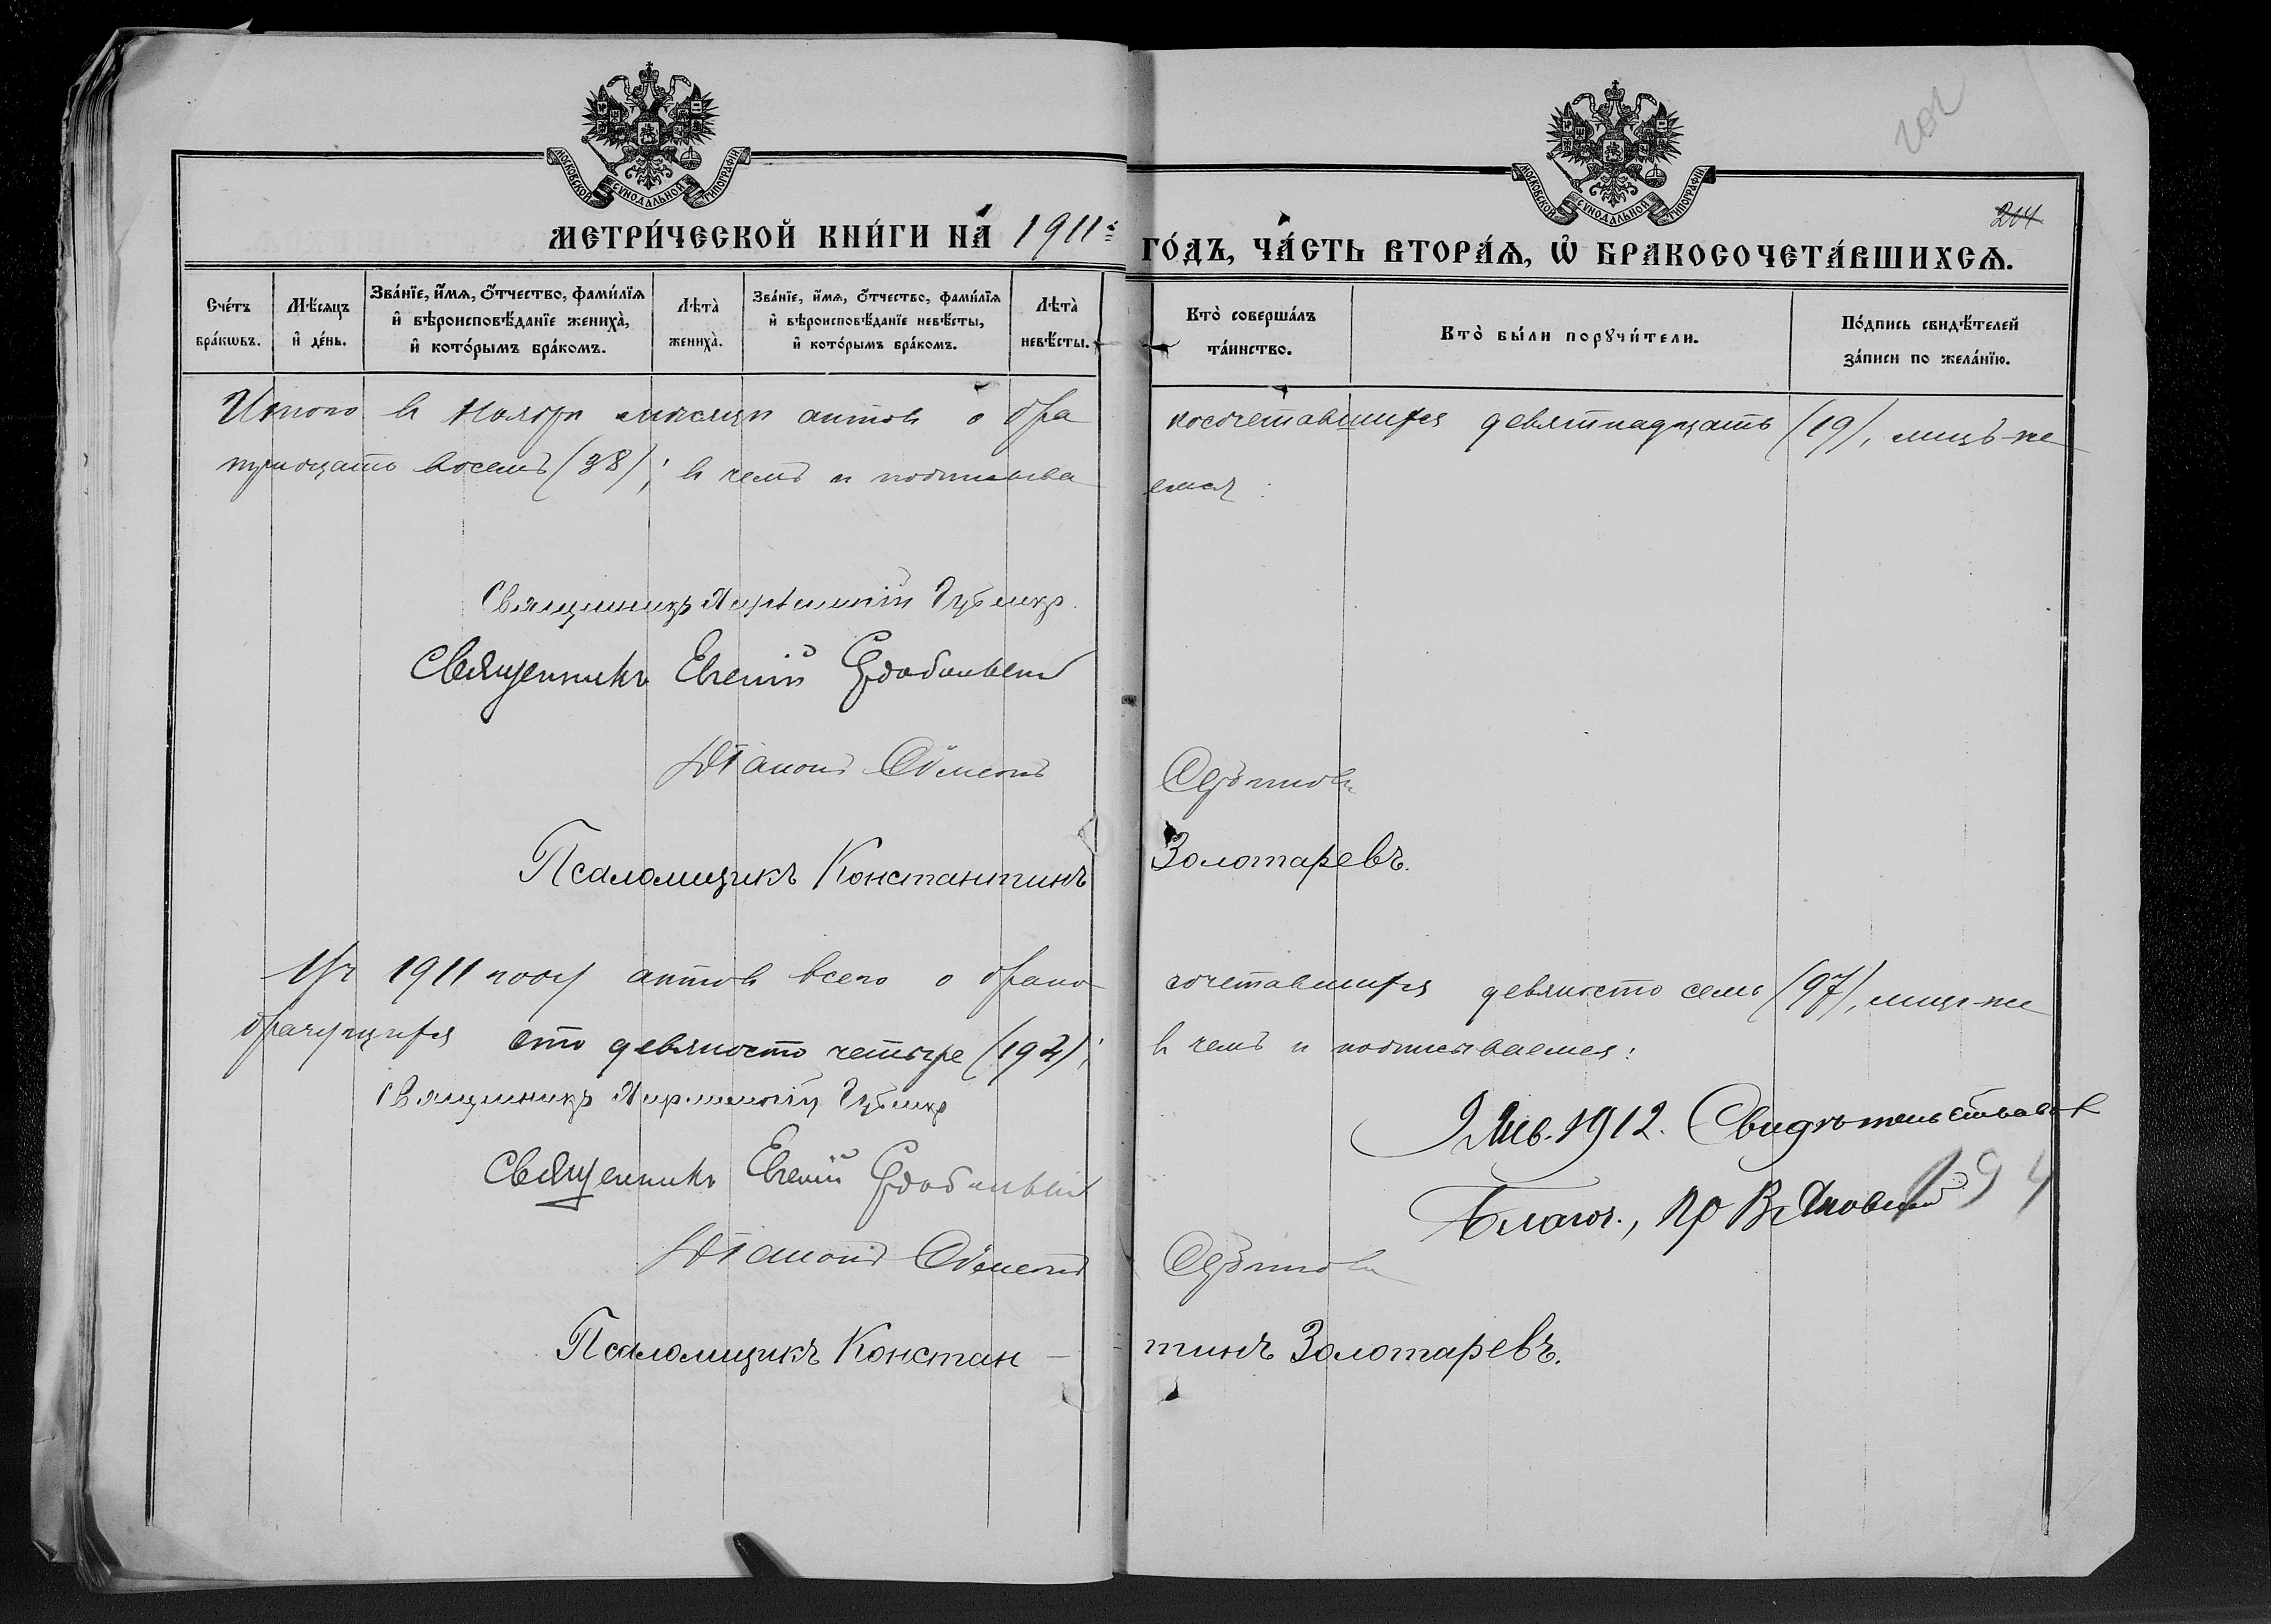 МОСКОВСКОЙ СѴНОДАЛЬНОЙ ТИПОГРАФІИ
МОСКОВСКОЙ СѴНОДАЛЬНОЙ ТИПОГРАФІИ
202
204
МЕТРИ́ЧЕСКОЙ КНИ́ГИ НА́ 1911й ГО́ДЪ, ЧА́СТЬ ВТОРА́Ѧ, Ѡ҆ БРАКОСОЧЕТА́ВШИХСѦ.
Сче́тъ бра́кѡвъ.
Мѣ́сѧцъ и҆ де́нь.
Зва́нїе, и҆́мѧ, ѻ҆́тчество, фамѝлїѧ и҆ вѣроисповѣ́данїе жениха̀, и҆ кото́рымъ бра́комъ.
Лѣта̀ жениха̀.
Зва́нїе, и҆́мѧ, ѻ҆́тчество, фамѝлїѧ и҆ вѣроисповѣ́данїе невѣ́сты, и҆ кото́рымъ бра́комъ.
Лѣта̀ невѣ́сты.
Кто̀ соверша́лъ та́инство.
Кто̀ бы́ли порꙋчи́тели.
По́дпись свидѣ́телей за́писи по жела́нїю.
Итого въ Ноябрѣ мѣсяцѣ актовъ о бракосочетавшихся девятнадцать (19), лицъ-же
тридцать восемь (38); въ чемъ и подписываемся:
Священникъ
Священникъ Евгеній
Діаконъ Сѵмеонъ
Псаломщикъ Константинъ Золотаревъ.
Въ 1911 году актовъ всего о бракосочетавшихся девяносто семь (97), лицъ-же
брачущихся сто девяносто четыре (194); въ чемъ и подписываемся:
Священникъ
Священникъ Евгеній
Діаконъ Сѵмеонъ
Псаломщикъ Константинъ Золотаревъ.
1912. Свидѣтельствовалъ
Благоч., пр
194